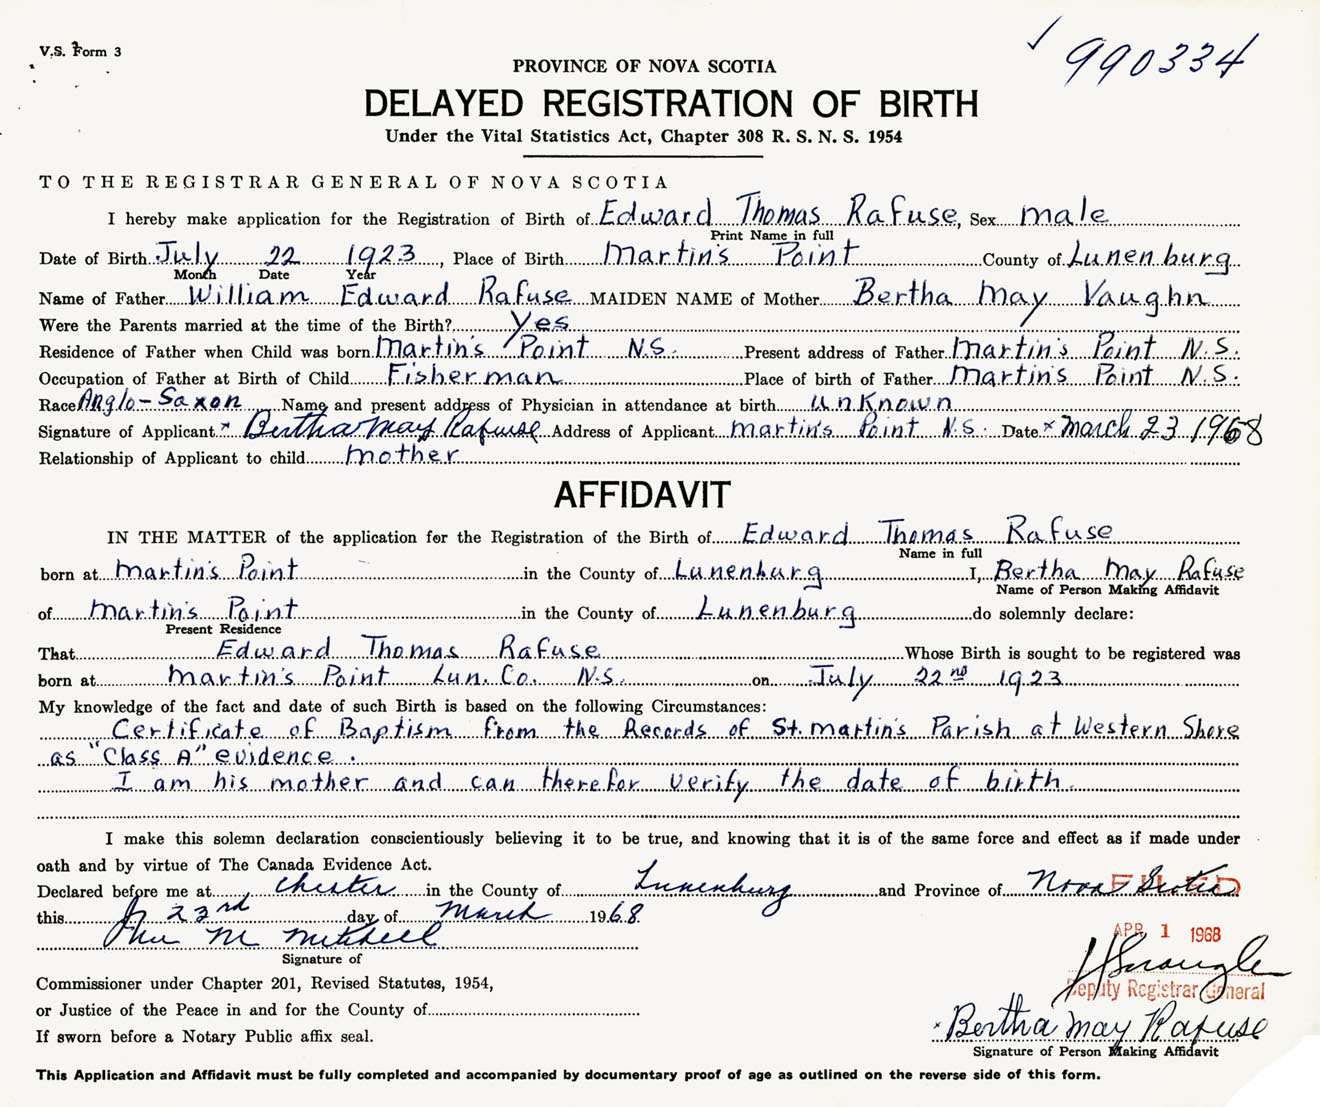 V.S. Form 3
990334
PROVINCE OF NOVA SCOTIA
DELAYED REGISTRATION OF BIRTH
Under the Vital Statistics Act, Chapter 308 R. S. N. S. 1954
TO THE REGISTRAR GENERAL OF NOVA SCOTIA
I hereby make application for the Registration of Birth of Edward Thomas Rafuse, Sex male
Print Name in full
Date of Birth July 22 1923, Place of Birth Martin's Point County of Lunenburg
Month Date Year
Name of Father William Edward Rafuse MAIDEN NAME of Mother Bertha May Vaughn
Were the Parents married at the time of the Birth? Yes
Residence of Father when Child was born Martin's Point N.S. Present address of Father Martin's Point N.S.
Occupation of Father at Birth of Child Fisherman Place of birth of Father Martin's Point N.S.
Race Anglo-Saxon Name and present address of Physician in attendance at birth unknown
Signature of Applicant x Bertha May Rafuse Address of Applicant Martin's Point N.S. Date x March 23 1968
Relationship of Applicant to child mother
AFFIDAVIT
IN THE MATTER of the application for the Registration of the Birth of Edward Thomas Rafuse
Name in full
born at Martin's Point in the County of Lunenburg I, Bertha May Rafuse
Name of Person Making Affidavit
of Martin's Point in the County of Lunenburg do solemnly declare:
Present Residence
That Edward Thomas Rafuse Whose Birth is sought to be registered was
born at Martin's Point Lun. Co. N.S. on July 22nd 1923
My knowledge of the fact and date of such Birth is based on the following Circumstances:
Certificate of Baptism from the Records of St. Martin's Parish at Western Shore
as "Class A" evidence.
I am his mother and can therefor verify the date of birth.
I make this solemn declaration conscientiously believing it to be true, and knowing that it is of the same force and effect as if made under
oath and by virtue of The Canada Evidence Act.
Declared before me at Chester in the County of Lunenburg and Province of Nova Scotia
FILED
this 23rd day of March 1968
APR 1 1968
M Mitchell
Signature of
Commissioner under Chapter 201, Revised Statutes, 1954,
Deputy Registrar General
or Justice of the Peace in and for the County of
x Bertha May Rafuse
If sworn before a Notary Public affix seal.
Signature of Person Making Affidavit
This Application and Affidavit must be fully completed and accompanied by documentary proof of age as outlined on the reverse side of this form.